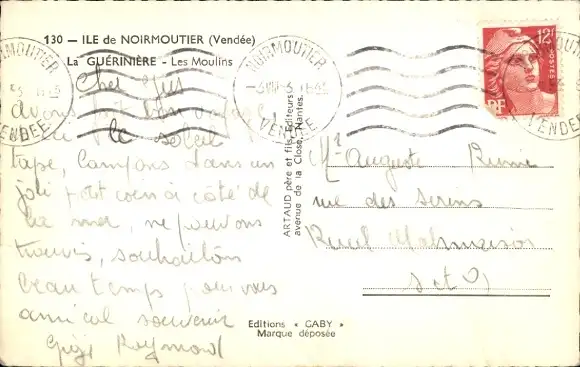 130 — ILE de NOIRMOUTIER (Vendée)
La GUÉRINIÈRE - Les Moulins
NOIRMOUTIER
VENDÉE
12F
POSTES
RF
Cher
avons fait bon voyage,
le soleil
tape, Campons dans un
joli petit coin à côté de
la mer, ne pouvons
trouver, souhaitons
beau temps pour vous
amical souvenir
Gigi Raymond
ARTAUD père et fils, Editeurs
avenue de la Close, Nantes.
Mr Auguste
rue des
Rueil Malmaison
S et O
Editions « GABY »
Marque déposée